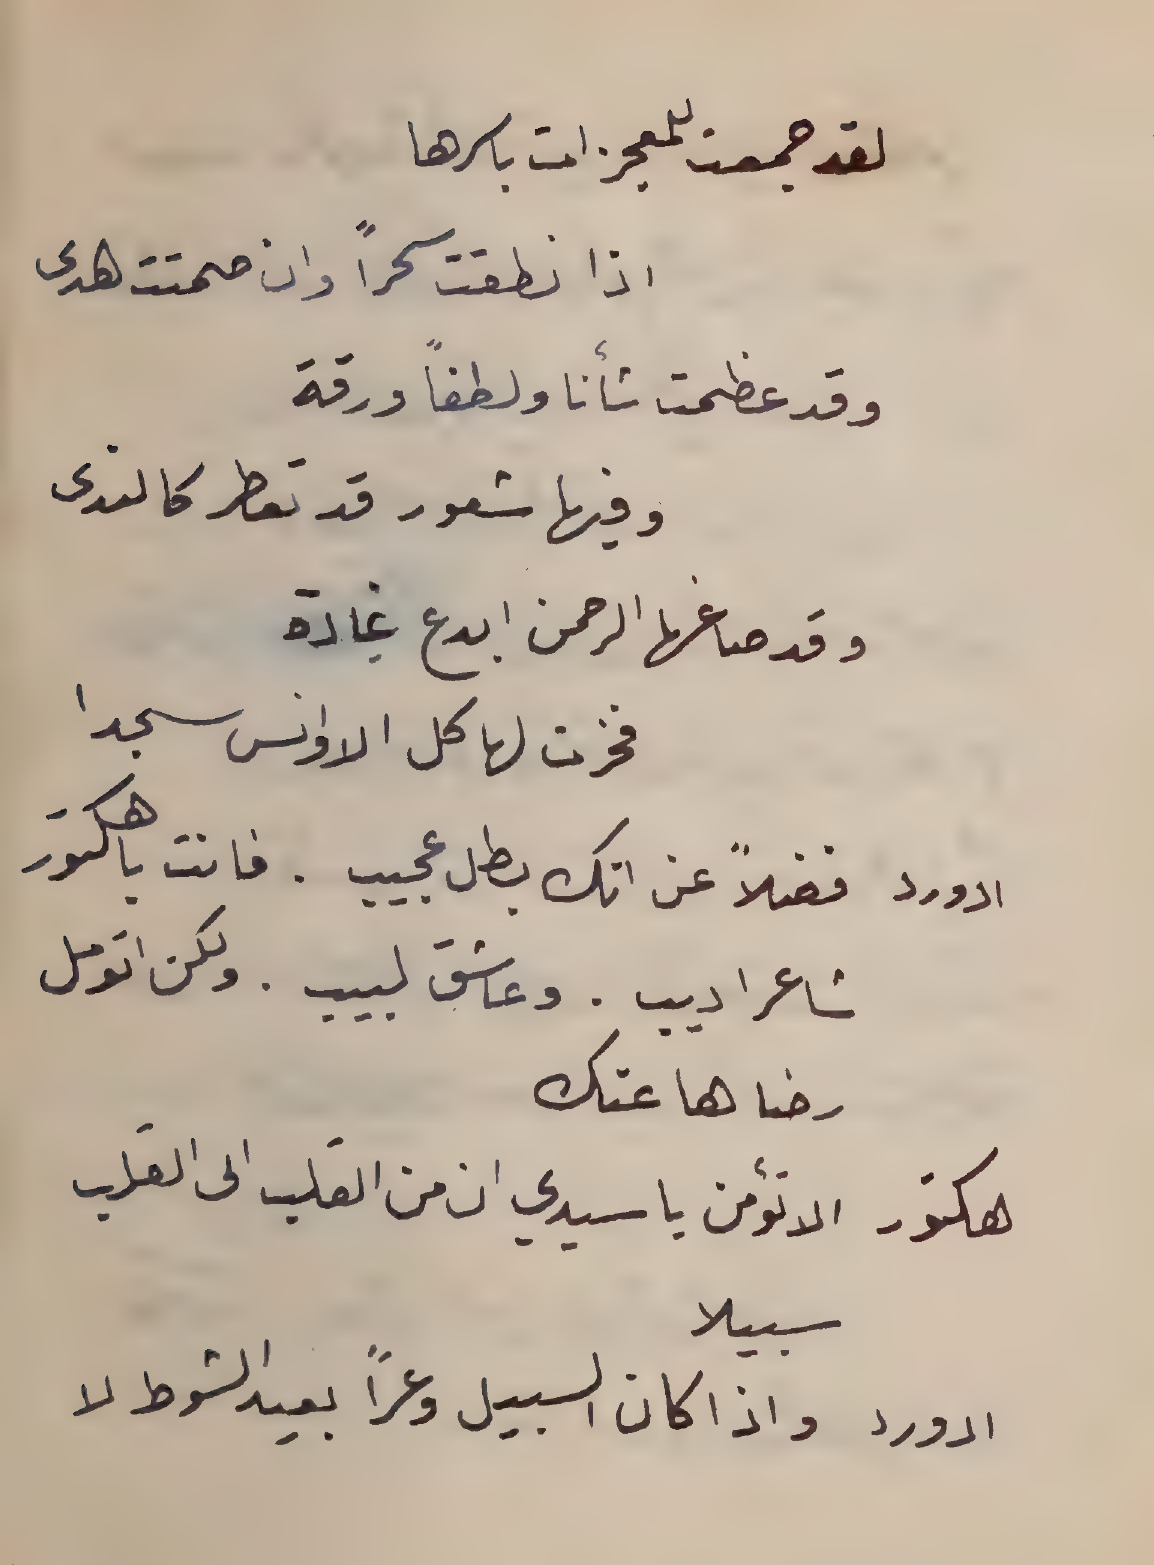 لقد جمعت للمعجزات باسرها
اذا نطقت سحراً وان صمتت هدى
وقد عظمت شأنا ولطفاً ورقة
وفيها شعور قد تعطر كالندى
وقد صاغها الرحمن ابدع غادة
فخرت لها كل الاوانس سجدا
ادورد فضلاً عن انك بطل عجيب . فانت يا هكتور
شاعر اديب . وعاشق لبيب . ولكن اتومل
رضاها عنك
هكتور الا تؤمن يا سيدي ان من القلب الى القلب
سبيلا
ادورد واذا كان السبيل وعراً بعيد الشوط لا